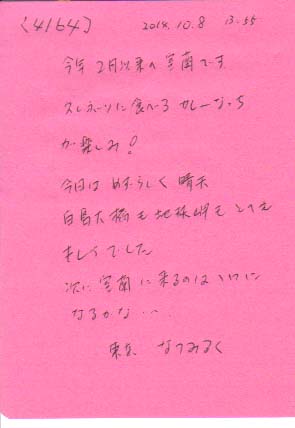 〈4164〉 2014.10.8 13:55
今年2月以来の室蘭です
久しぶりに食べる カレーラーメン
が楽しみ!
今日は めずらしく 晴天
白鳥大橋も地球岬も とっても
キレイでした
次に室蘭に来るのは いつに
なるかな・・・
東京 なつみるく